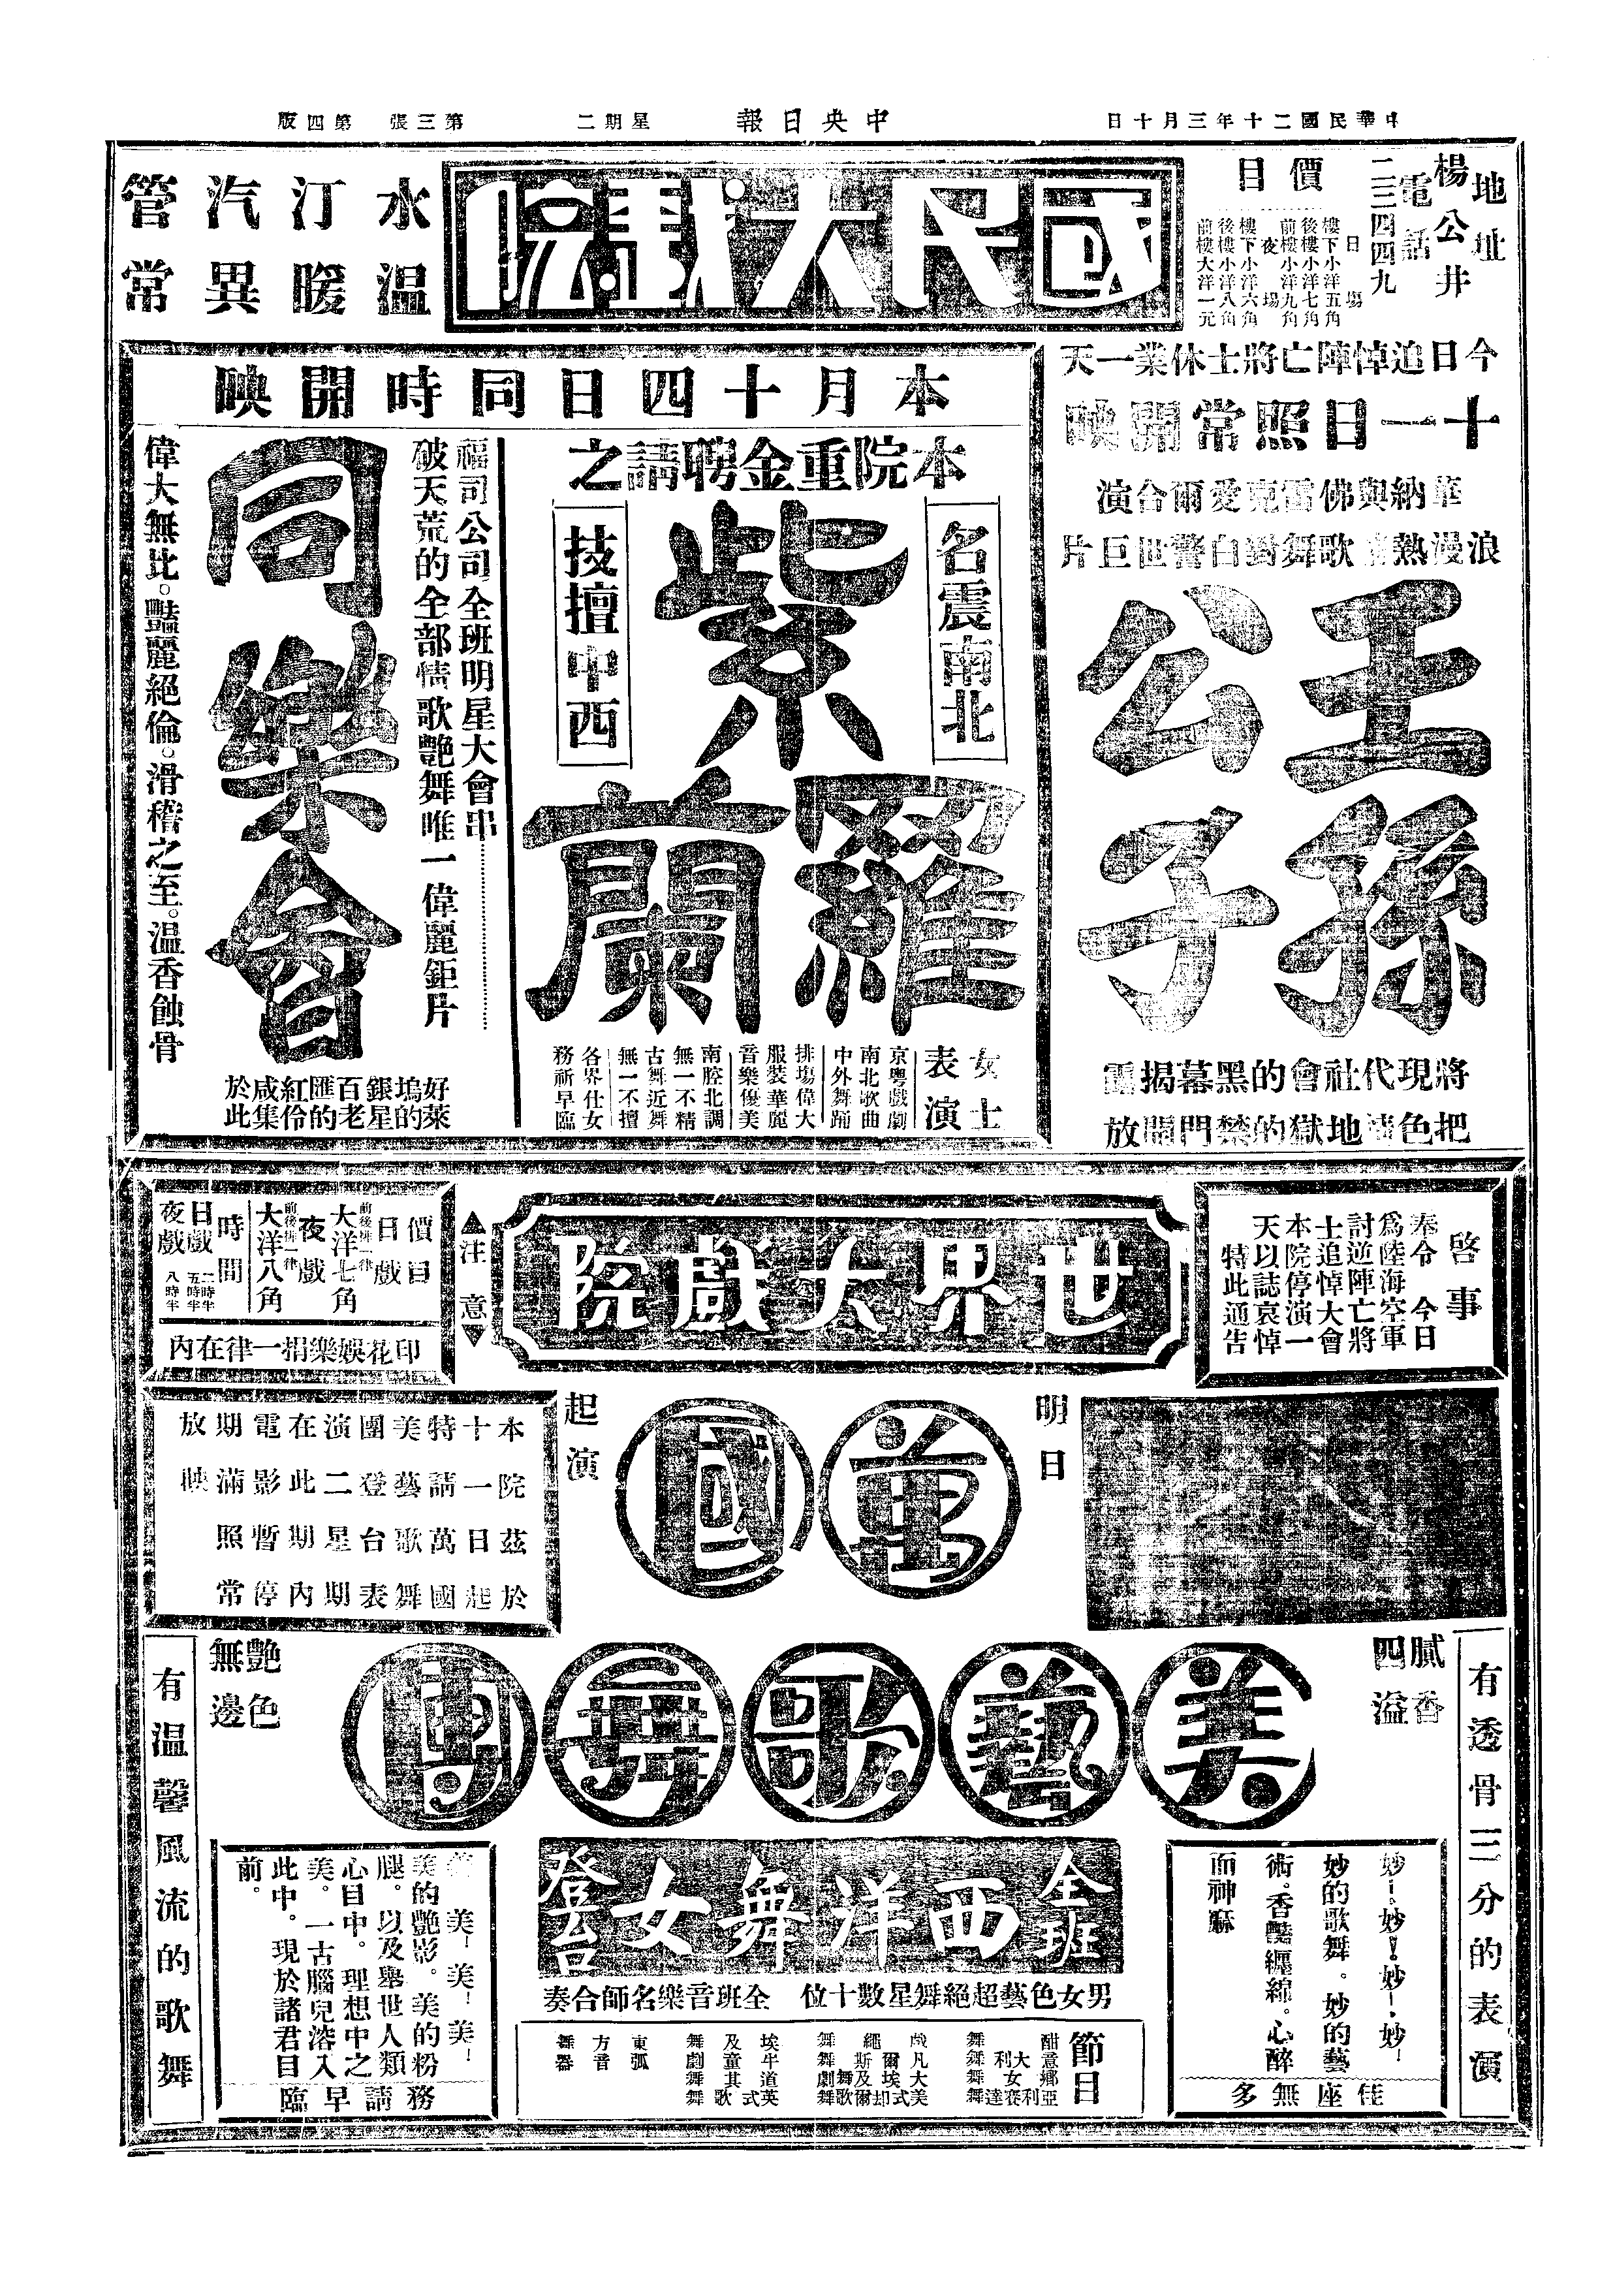 中華民國二十年三月十日
中央日報
星期二
第三張 第四版
地址
楊公井
電話
二三四四九
價目
日場
樓下小洋五角
後樓小洋七角
前樓小洋九角
夜場
樓下小洋六角
後樓小洋八角
前樓大洋一元
國民大戲院
水汀汽管
溫暖異常
今日追悼陣亡將士休業一天
十一日照常開映
華納與佛雷克愛爾合演
浪漫熱 歌舞對白警世巨片
王孫公子
將現代社會的黑幕揭露
把色情地獄的禁門開放
本月十四日同時開映
本院重金聘請之
名震南北
紫羅蘭
技擅中西
女士
表演
京粵戲劇
南北歌曲
中外舞踊
排塲偉大
服裝華麗
音樂優美
南腔北調
無一不精
古舞近舞
無一不擅
各界仕女
務祈早臨
福司公司全班明星大會串
破天荒的全部情歌艷舞唯一偉麗鉅片
同樂會
偉大無比。豔麗絕倫。滑稽之至。溫香蝕骨
好塢銀百匯紅咸於
萊的星老的伶集此
啓事
奉令 今日
為陸海空軍
討逆陣亡將
士追悼大會
本院停演一
天以誌哀悼
特此通告
世界大戲院
▲注意▼
價目
日戲
前後排一律
大洋七角
夜戲
前後排一律
大洋八角
時間
日戲 二時半 五時半
夜戲 八時半
印花娛樂捐一律在內
明日
起演
萬國
本院茲於
十一日起
特請萬國
美藝歌舞
團登台表
演二星期
在此期內
電影暫停
期滿照常
放映
美藝歌舞團
膩香四溢
艷色無邊
有透骨三分的表演
有溫馨風流的歌舞
妙!妙!妙!妙!
妙的歌舞。妙的藝
術。香豔纏綿。心醉
而神麻
佳座無多
全班西洋舞女登台
男女色藝超絕舞星數十位 全班音樂名師合奏
節目
美!美!美!
美的艷影。美的粉
腿。以及舉世人類
心目中。理想中之
美。一古腦兒溶入
此中。現於諸君目
前。
務請早臨